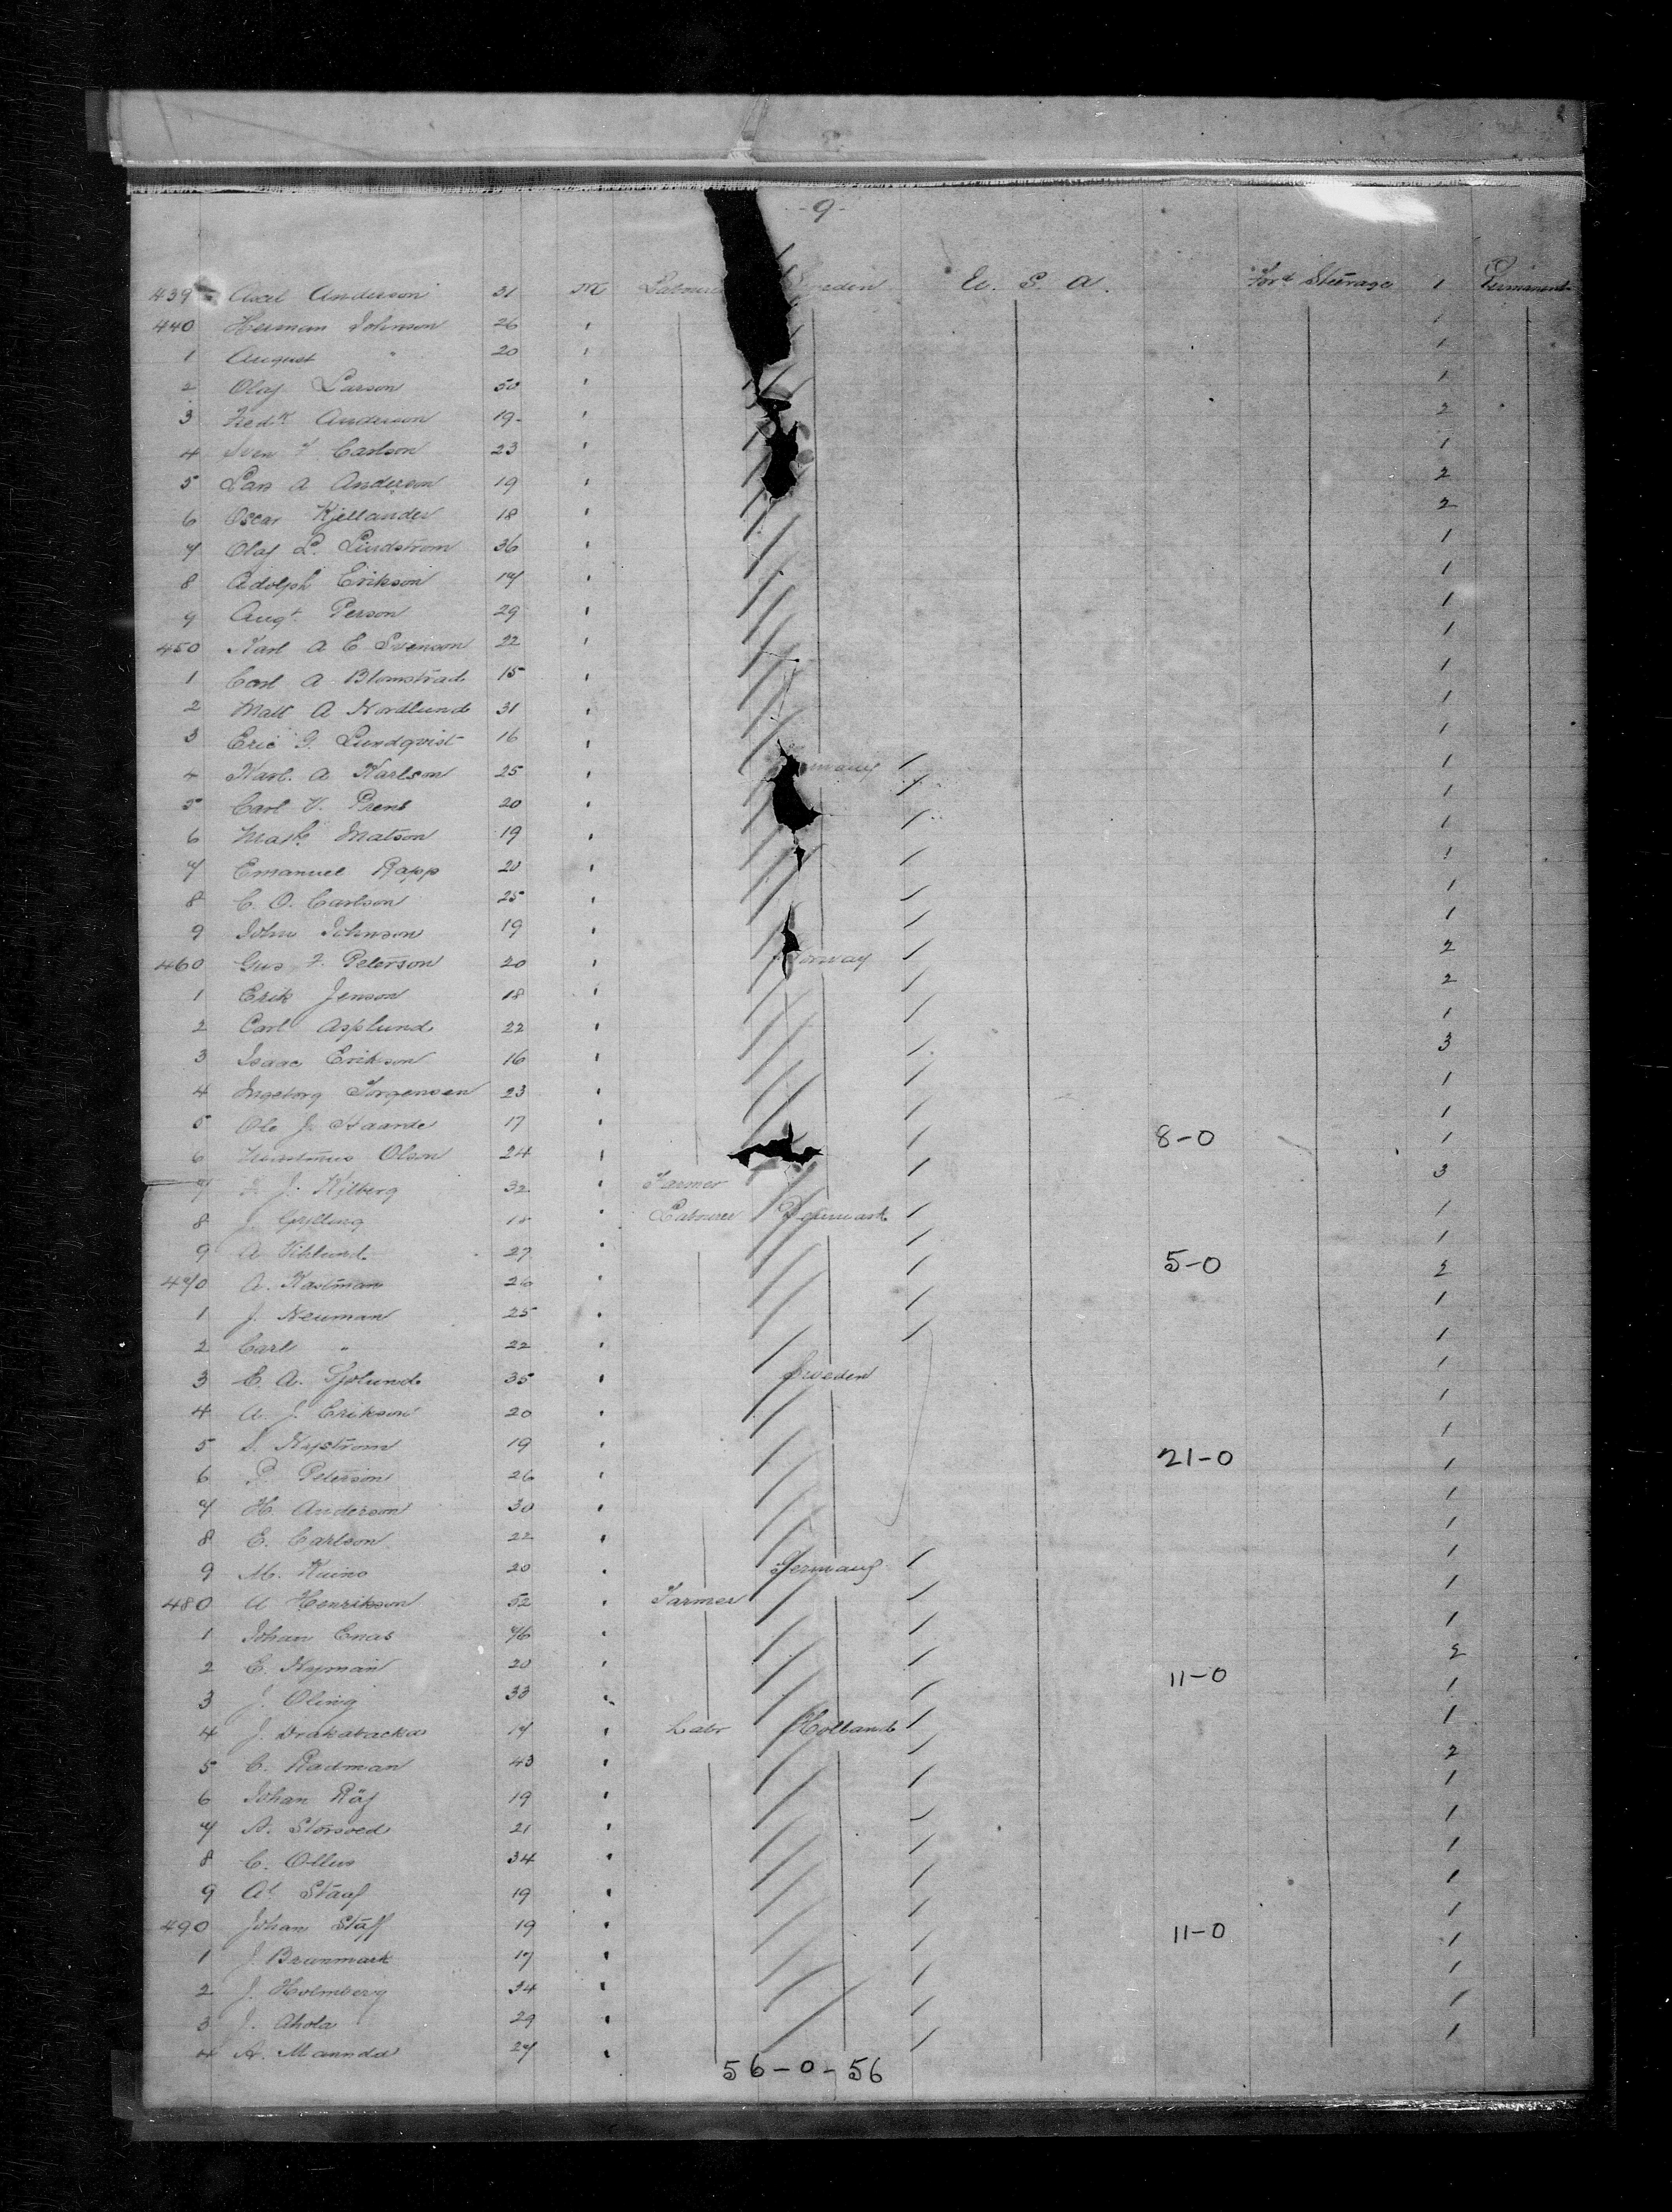 -9-
439 Axel Anderson 31 M Labourer Sweden U. S. A. Ford Steerage 1 Permanent
440 Herman Johnson 26 ' 1
1 August " 20 ' 1
2 Olaf Larson 50 ' 1
3 Fredk Anderson 19 ' 2
4 Sven F Carlson 23 ' 1
5 Lars A Anderson 19 ' 2
6 Oscar Kjellander 18 ' 2
7 Olaf L. Lindstrom 36 ' 1
8 Adolph Erikson 17 ' 1
9 Augt. Person 29 ' 1
450 Karl A E Svenson 22 ' 1
1 Carl A Blomstrad 15 ' 1
2 Matt A Nordlund 31 ' 1
3 Eric G. Lundqvist 16 ' 1
4 Karl. A Karlson 25 ' 1
5 Carl V. Prens 20 ' 1
6 Matson 19 ' 1
7 Emanuel Rapp 20 ' 1
8 C. O. Carlson 25 ' 1
9 John Johnson 19 ' 1
460 Gus F. Peterson 20 ' Norway 2
1 Erik Jenson 18 ' 2
2 Carl Asplund 22 ' 1
3 Isaac Erikson 16 ' 3
4 Ingeborg Jorgensen 23 ' 1
5 Ole J. Haarde 17 ' 1
6 Olson 24 ' 8-0 1
7 J. Kjlberg 32 ' Farmer 3
8 J. Gylling ' Labourer Denmark 1
9 A Viklund 27 ' 1
470 A. Kastman 26 ' 5-0 2
1 J. Neuman 25 ' 1
2 Carl " 22 ' 1
3 E. A. Sjolund 35 ' Sweden 1
4 A. J. Erikson 20 ' 1
5 Nystrom 19 ' 1
6 P. Peterson 26 ' 21-0 1
7 H. Anderson 30 ' 1
8 E. Carlson 22 ' 1
9 M. Kuino 20 ' Germany 1
480 A Henrikson 52 ' Farmer 1
1 Johan Enas 46 ' 1
2 E. Nyman 20 ' 2
3 J. Oling 33 ' 11-0 1
4 J. Drakabacka 17 ' Labr Holland 1
5 C. Radman 43 ' 2
6 Johan Röj 19 ' 1
7 A. Storsved 21 ' 1
8 C. Ollus 34 ' 1
9 Al Stauf 19 ' 1
490 Johan Staff 19 ' 11-0 1
1 J. Brunmark 17 ' 1
2 J. Holmberg 34 ' 1
3 J. Ahola 29 ' 1
4 A. Mannda 27 ' 1
56-0-56